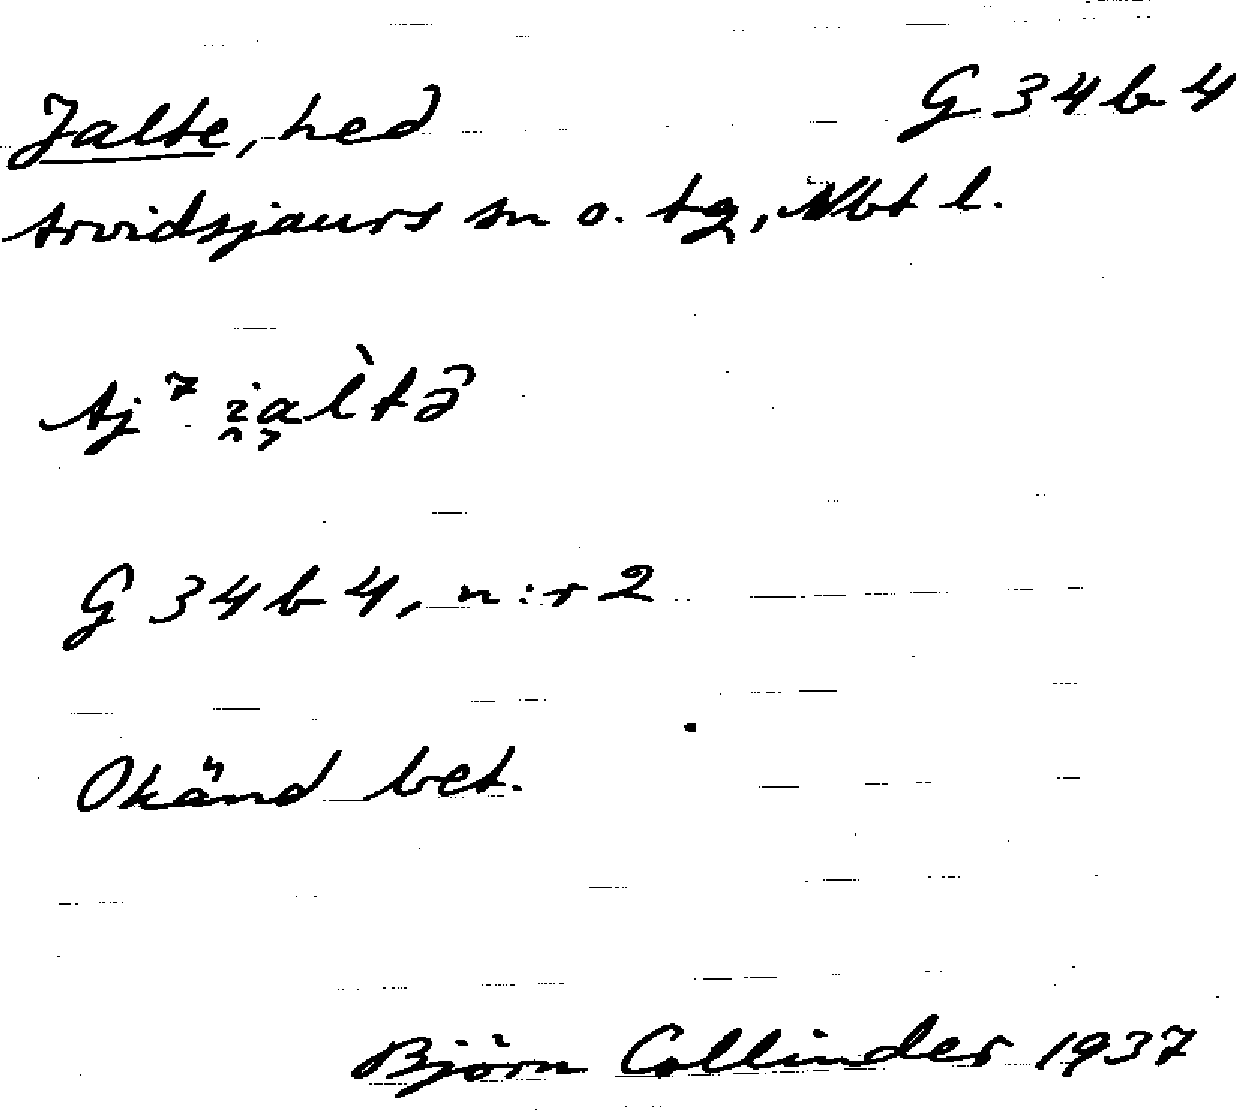 Jalte, hed G 34 b 4
Arvidsjaurs sn o. tg, Nbt l.
Aj⁷
G 34 b 4, n:r 2
Okänd bet.
Björn Collinder 1937